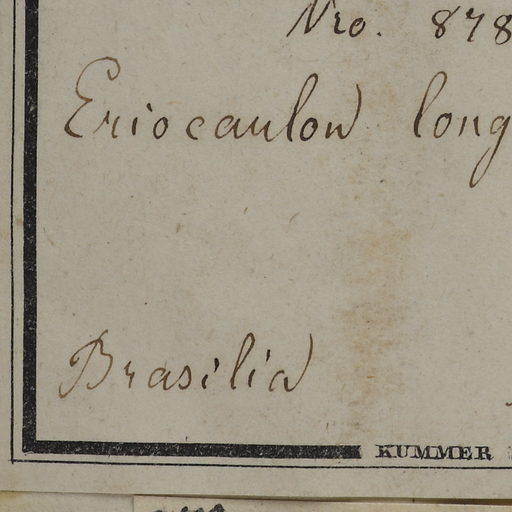 Nro. 878
Eriocaulon long
Brasilia
KUMMER